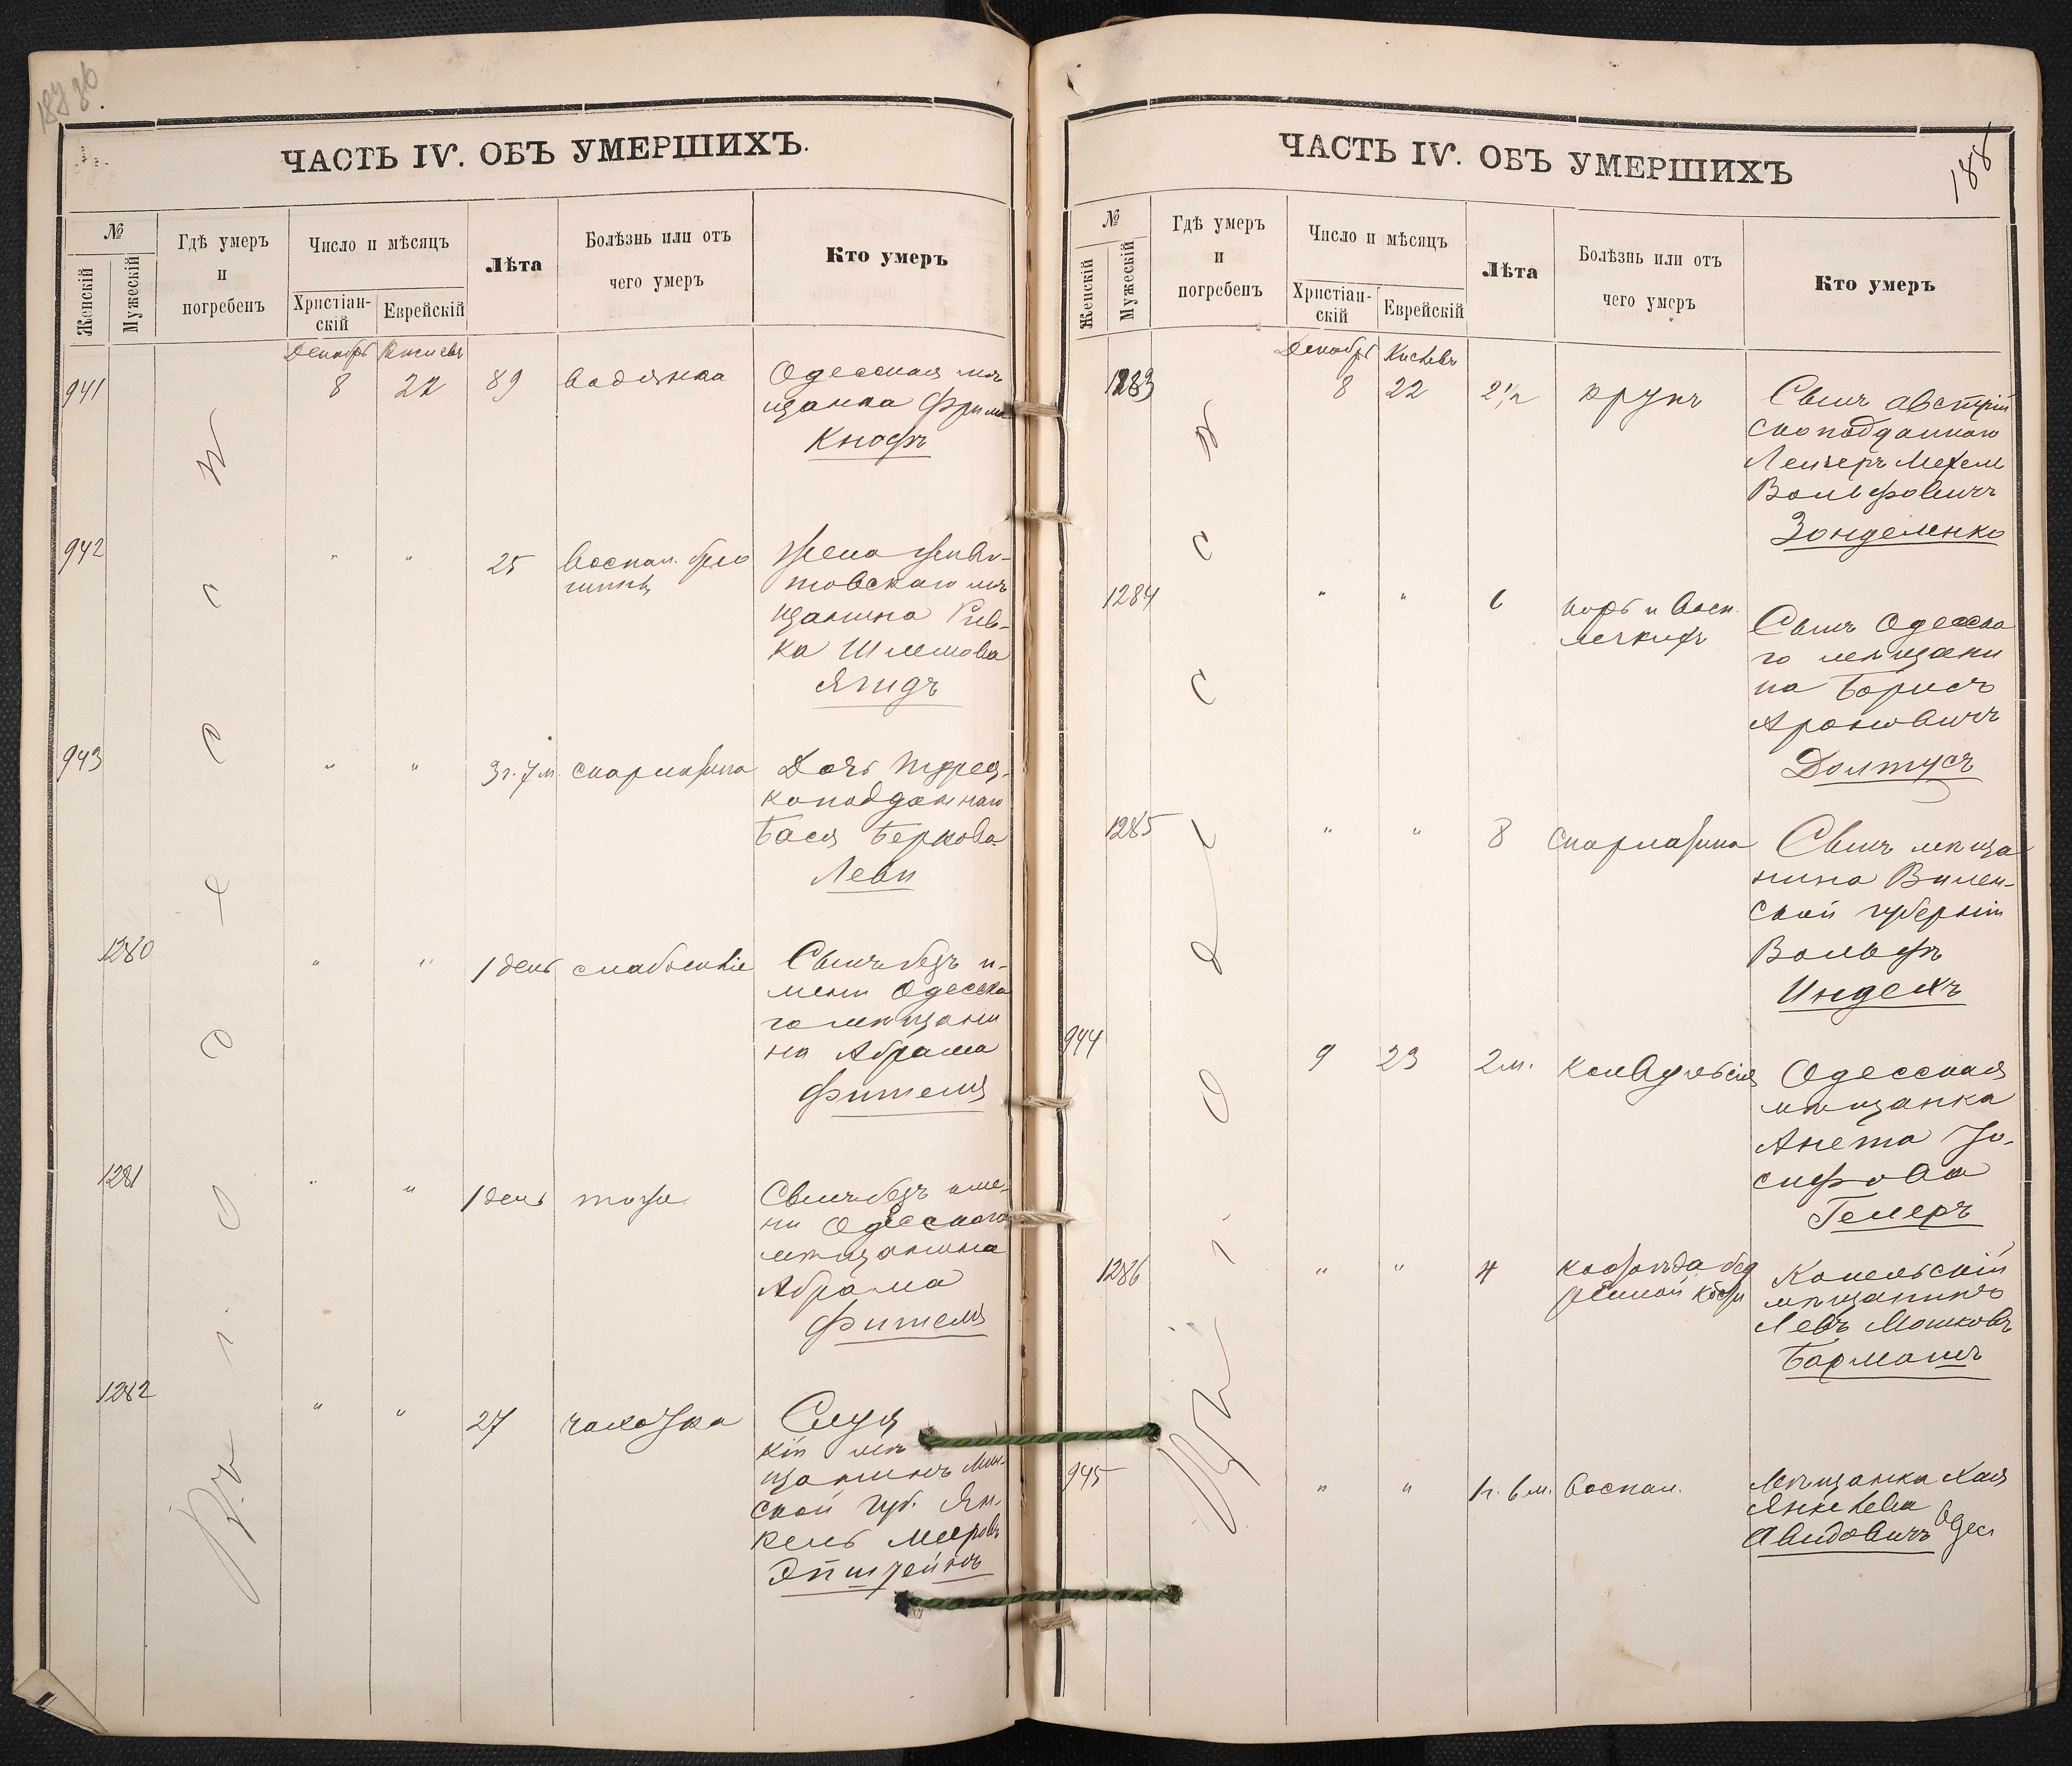 ЧАСТЬ IV. ОБЪ УМЕРШИХЪ.
№
Женскій
Мужескій
Гдѣ умеръ
и
погребенъ
Число и мѣсяцъ
Христіан-
скій
Еврейскій
Лѣта
Болѣзнь или отъ
чего умеръ
Кто умеръ
Декабрь Кислевъ
941 8 22 89 водянка Одесская мѣ
щанка Фрима
Кнофъ
942 " " 25 Воспал. брю
шины
Жена Животовскаго мѣ
щанина Рив-
ка Шлемова
Ягидъ
943 " " 3 г. 7 м. скарлатина Дочь турец-
коподданнаго
Бася Беркова
Леви
1280 " " 1 день слабосиліе Сынъ безъ и-
мени Одесска
го мѣщани
на Абрама
Фителя
1281 " " 1 день тоже Сынъ безъ име-
ни Одесскаго
мѣщанина
Абрама
Фителя
1282 " " 27 чахотка Слуц
кій мѣ
щанинъ Мин-
ской губ. Ян-
кель Мееровъ
Эпштейнъ
Въ Одессѣ
ЧАСТЬ IV. ОБЪ УМЕРШИХЪ
188
№
Женскій
Мужескій
Гдѣ умеръ
и
погребенъ
Число и мѣсяцъ
Христіан-
скій
Еврейскій
Лѣта
Болѣзнь или отъ
чего умеръ
Кто умеръ
Декабрь Кислевъ
1283 8 22 2½ крупъ Сынъ австрій
скоподданнаго
Лейзеръ Мехель
Вольфовичъ
Зонделенко
1284 " " 6 корь и восп.
легкихъ
Сынъ Одесска
го мѣщани
на Борисъ
Ароновичъ
Долтусъ
1285 " " 8 скарлатина Сынъ мѣща
нина Вилен-
ской губерніи
Вольфъ
Индехъ
944 9 23 2 м. конвульсія Одесская
мѣщанка
Анета Іо-
сифова
Гелеръ
1286 " " 4
Мѣщанинъ
Левъ Мошковъ
Барманъ
945 " " 1 г. 6 м. воспал. Мѣщанка Хая
Янкелева
Авидовичъ Одес.